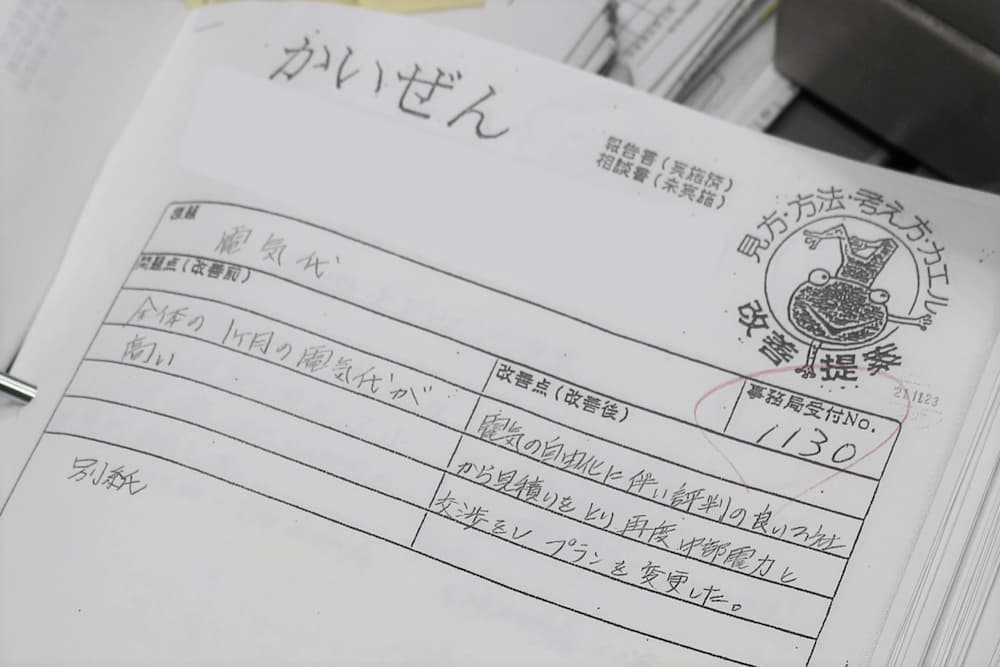 かいぜん
報告書(実施済)
相談書(未実施)
見方・方法・考え方・カエル
改善提案
電気代
問題点(改善前)
全体の1ヶ月の電気代が
高い
別紙
21.11.23
事務局受付No.
1130
改善点(改善後)
電気の自由化に伴い評判の良い
から見積りをとり再度中部電力と
交渉をしプランを変更した。